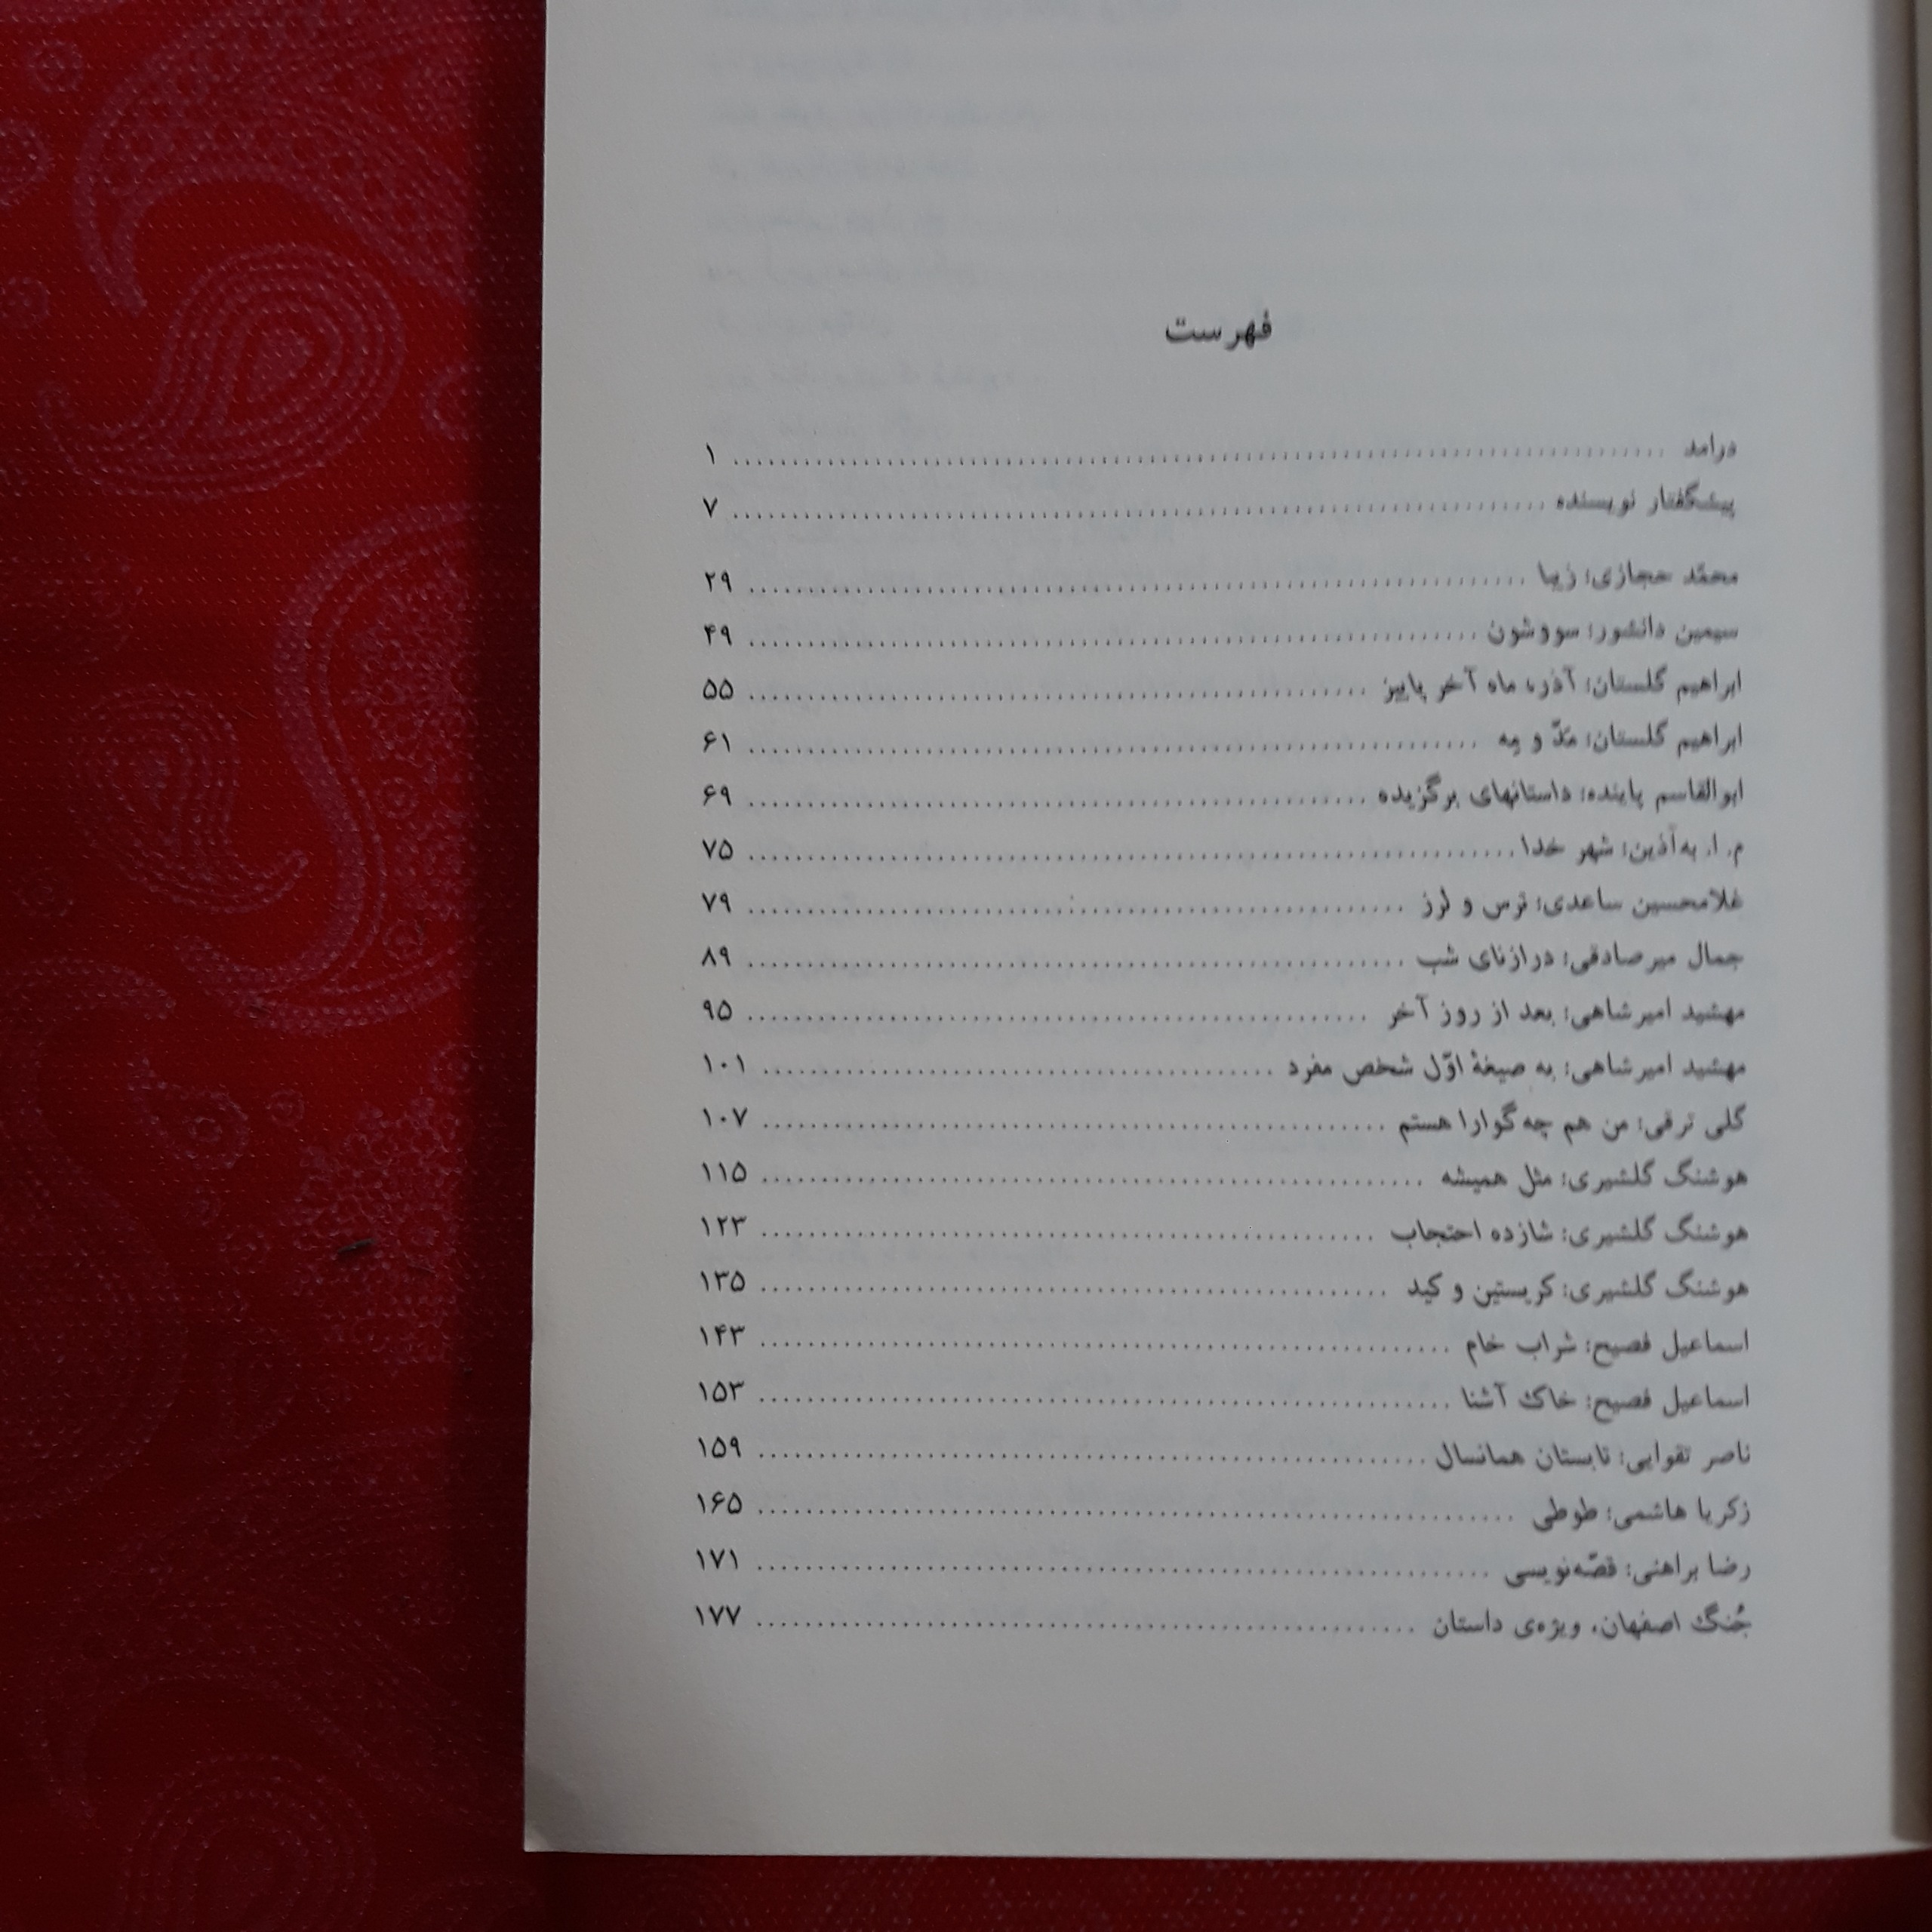 فهرست
درامد ........ ۱
پیشگفتار نویسنده ........ ۷
محمّد حجازی؛ زیبا ........ ۲۹
سیمین دانشور؛ سووشون ........ ۴۹
ابراهیم گلستان؛ آذر، ماه آخر پاییز ........ ۵۵
ابراهیم گلستان؛ مَدّ و مِه ........ ۶۱
ابوالقاسم پاینده؛ داستانهای برگزیده ........ ۶۹
م. ا. به‌آذین؛ شهر خدا ........ ۷۵
غلامحسین ساعدی؛ ترس و لرز ........ ۷۹
جمال میرصادقی؛ درازنای شب ........ ۸۹
مهشید امیرشاهی؛ بعد از روز آخر ........ ۹۵
مهشید امیرشاهی؛ به صیغهٔ اوّل شخص مفرد ........ ۱۰۱
گلی ترقی؛ من هم چه‌گوارا هستم ........ ۱۰۷
هوشنگ گلشیری؛ مثل همیشه ........ ۱۱۵
هوشنگ گلشیری؛ شازده احتجاب ........ ۱۲۳
هوشنگ گلشیری؛ کریستین و کید ........ ۱۳۵
اسماعیل فصیح؛ شراب خام ........ ۱۴۳
اسماعیل فصیح؛ خاک آشنا ........ ۱۵۳
ناصر تقوایی؛ تابستان همانسال ........ ۱۵۹
زکریا هاشمی؛ طوطی ........ ۱۶۵
رضا براهنی؛ قصّه‌نویسی ........ ۱۷۱
جُنگ اصفهان، ویژه‌ی داستان ........ ۱۷۷